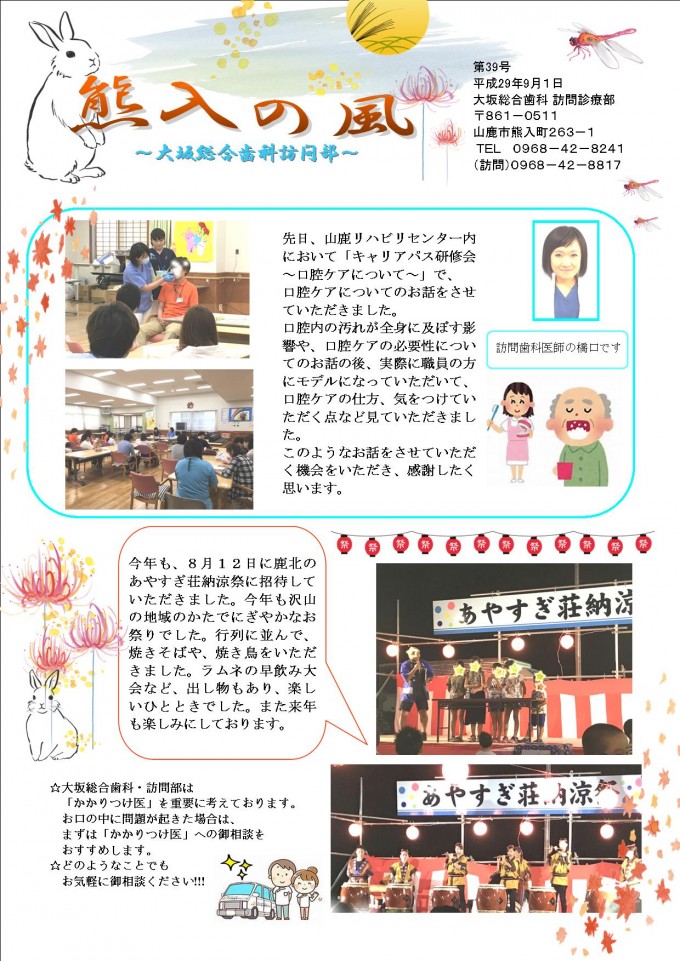 熊入の風
～大坂総合歯科訪問部～
第39号
平成29年9月1日
大坂総合歯科 訪問診療部
〒861－0511
山鹿市熊入町263－1
TEL 0968－42－8241
（訪問）0968－42－8817
先日、山鹿リハビリセンター内
において「キャリアパス研修会
～口腔ケアについて～」で、
口腔ケアについてのお話をさせ
ていただきました。
口腔内の汚れが全身に及ぼす影
響や、口腔ケアの必要性につい
てのお話の後、実際に職員の方
にモデルになっていただいて、
口腔ケアの仕方、気をつけてい
ただく点など見ていただきまし
た。
このようなお話をさせていただ
く機会をいただき、感謝したく
思います。
訪問歯科医師の橋口です
今年も、８月１２日に鹿北の
あやすぎ荘納涼祭に招待して
いただきました。今年も沢山
の地域のかたでにぎやかなお
祭りでした。行列に並んで、
焼きそばや、焼き鳥をいただ
きました。ラムネの早飲み大
会など、出し物もあり、楽し
いひとときでした。また来年
も楽しみにしております。
祭 祭 祭 祭 祭 祭 祭 祭 祭 祭
あやすぎ荘納涼
あやすぎ荘納涼祭
☆大坂総合歯科・訪問部は
「かかりつけ医」を重要に考えております。
お口の中に問題が起きた場合は、
まずは「かかりつけ医」への御相談を
おすすめします。
☆どのようなことでも
お気軽に御相談ください!!!